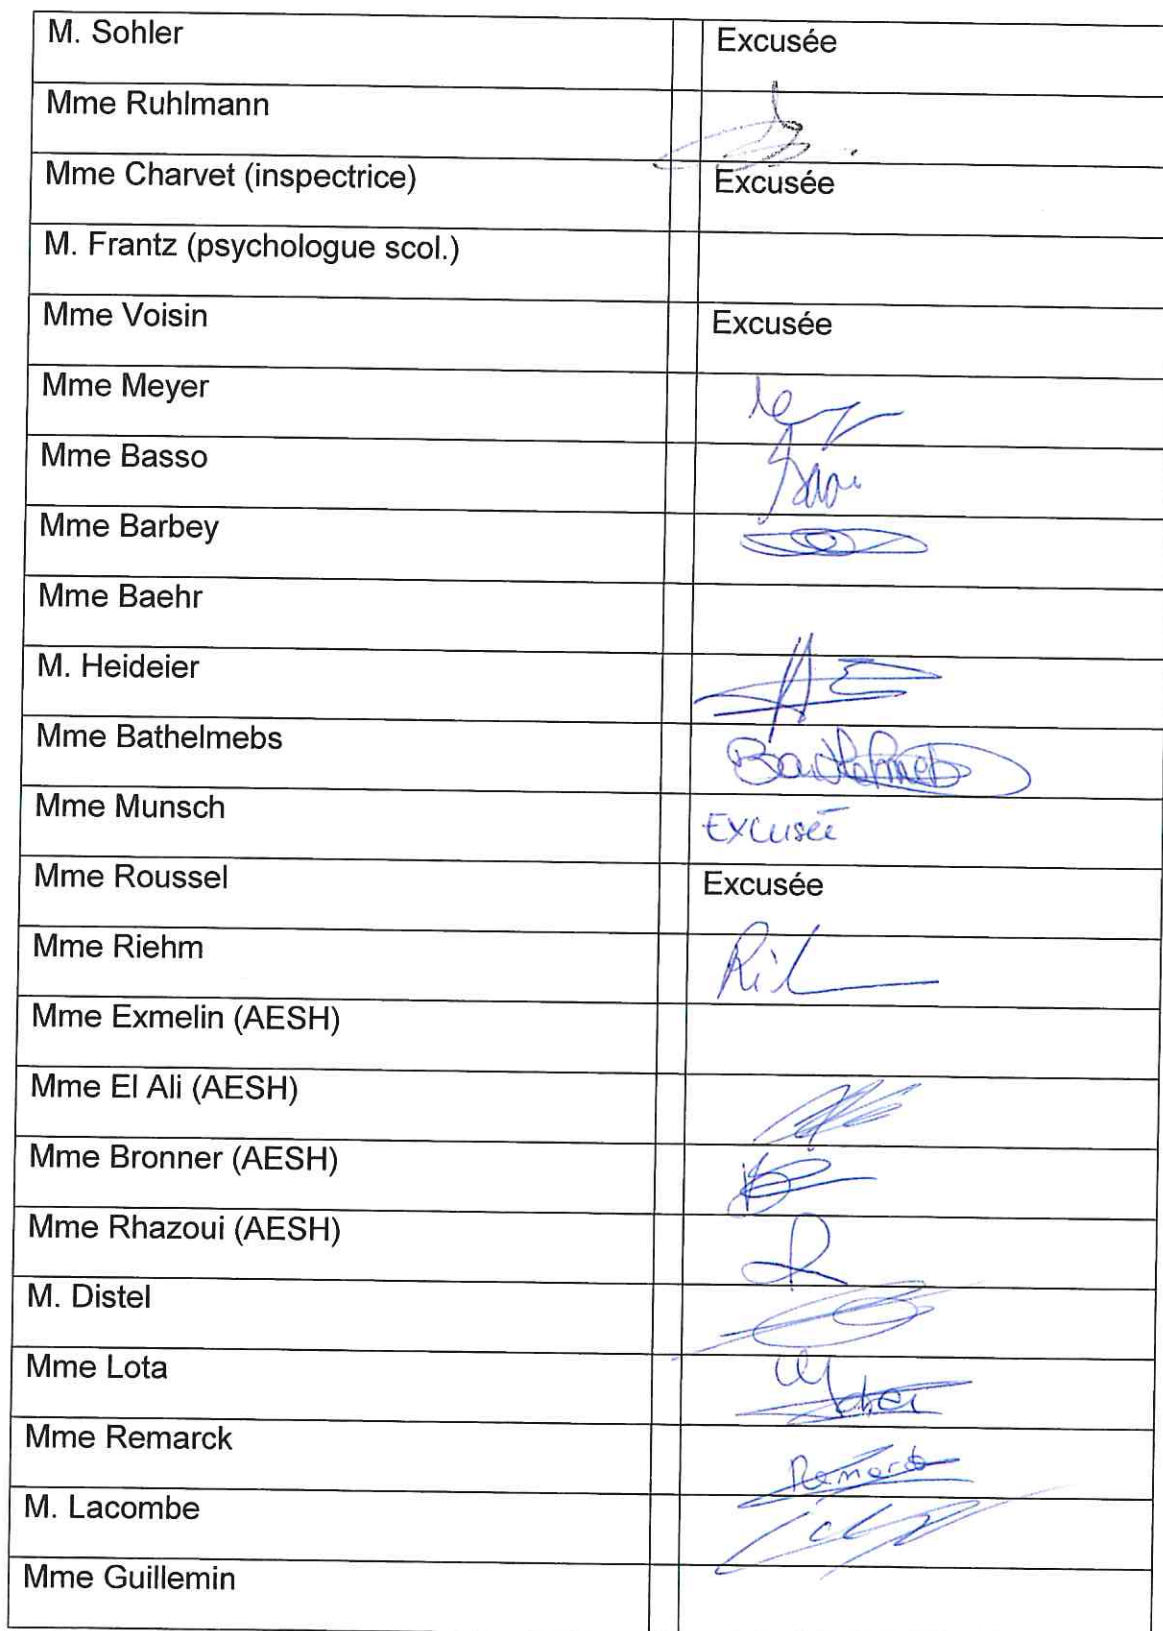 M. Sohler Excusée
Mme Ruhlmann
Mme Charvet (inspectrice) Excusée
M. Frantz (psychologue scol.)
Mme Voisin Excusée
Mme Meyer
Mme Basso
Mme Barbey
Mme Baehr
M. Heideier
Mme Bathelmebs Barthelmebs
Mme Munsch Excusée
Mme Roussel Excusée
Mme Riehm
Mme Exmelin (AESH)
Mme El Ali (AESH)
Mme Bronner (AESH)
Mme Rhazoui (AESH)
M. Distel
Mme Lota
Mme Remarck Remarck
M. Lacombe
Mme Guillemin